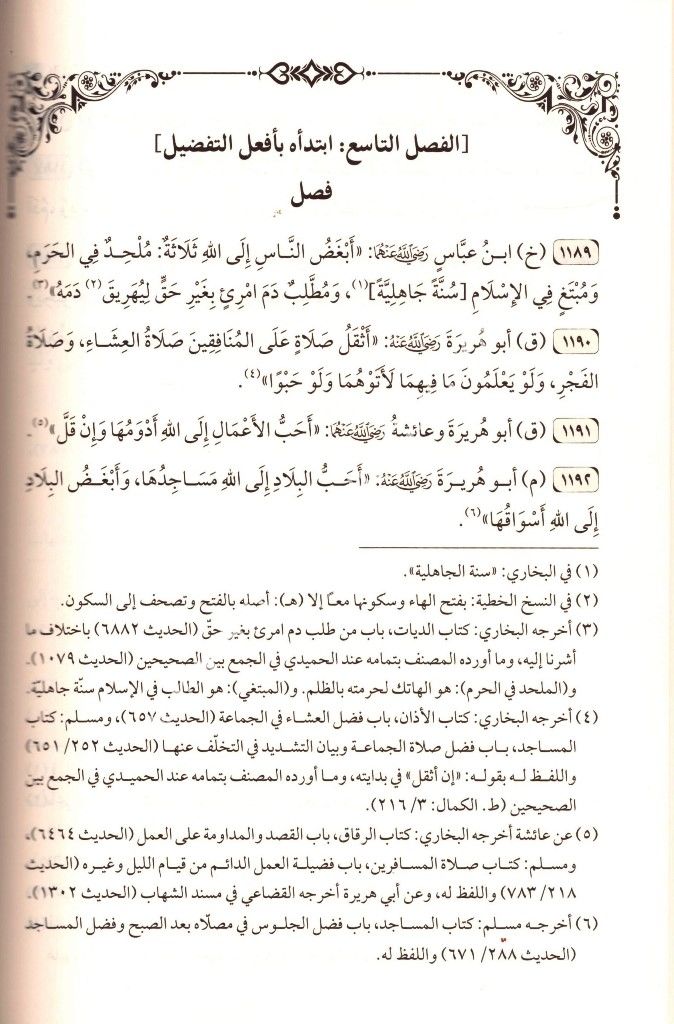 [الفصل التاسع: ابتدأه بأفعل التفضيل]
فصل
١١٨٩ (خ) ابـنُ عبَّاسٍ رَضِيَ اللَّهُ عَنْهُمَا: «أَبْغَضُ النَّاسِ إِلَى اللهِ ثَلَاثَةٌ: مُلْحِدٌ فِي الحَرَمِ،
وَمُبْتَغٍ فِي الإِسْلَامِ [سُنَّةً جَاهِلِيَّةً](١)، وَمُطَّلِبٌ دَمَ امْرِئٍ بِغَيْرِ حَقٍّ لِيُهَرِيقَ(٢) دَمَهُ»(٣).
١١٩٠ (ق) أبو هُريرةَ رَضِيَ اللَّهُ عَنْهُ: «أَثْقَلُ صَلَاةٍ عَلَى المُنَافِقِينَ صَلَاةُ العِشَاءِ، وَصَلَاةُ
الفَجْرِ، وَلَوْ يَعْلَمُونَ مَا فِيهِمَا لَأَتَوْهُمَا وَلَوْ حَبْوًا»(٤).
١١٩١ (ق) أبو هُريرَةَ وعائشةُ رَضِيَ اللَّهُ عَنْهُمَا: «أَحَبُّ الأَعْمَالِ إِلَى اللهِ أَدْوَمُهَا وَإِنْ قَلَّ»(٥).
١١٩٢ (م) أبـو هُريـرَةَ رَضِيَ اللَّهُ عَنْهُ: «أَحَـبُّ البِلَادِ إِلَى اللهِ مَسَاجِدُهَا، وَأَبْغَـضُ البِلَادِ
إِلَى اللهِ أَسْوَاقُهَا»(٦).
(١) في البخاري: «سنة الجاهلية».
(٢) في النسخ الخطية: بفتح الهاء وسكونها معـًا إلا (هـ): أصله بالفتح وتصحف إلى السكون.
(٣) أخرجه البخاري: كتاب الديات، باب من طلب دم امرئ بغير حقّ (الحديث ٦٨٨٢) باختلاف ما
أشرنا إليه، وما أورده المصنف بتمامه عند الحميدي في الجمع بين الصحيحين (الحديث ١٠٧٩).
و(الملحد في الحرم): هو الهاتك لحرمته بالظلم. و(المبتغي): هو الطالب في الإسلام سنّة جاهليّة.
(٤) أخرجه البخاري: كتاب الأذان، باب فضل العشاء في الجماعة (الحديث ٦٥٧)، ومسلم: كتاب
المساجد، بـاب فضل صلاة الجماعـة وبيان التشديد في التخلّف عنهـا (الحديث ٢٥٢/ ٦٥١)
واللفـظ لـه بقولـه: «إن أثقل» في بدايته، ومـا أورده المصنف بتمامه عند الحميـدي في الجمع بين
الصحيحين (ط. الكمال: ٣/ ٢١٦).
(٥) عن عائشة أخرجه البخاري: كتاب الرقاق، باب القصد والمداومة على العمل (الحديث ٦٤٦٤)،
ومسلم: كتـاب صلاة المسافرين، باب فضيلـة العمل الدائم من قيـام الليل وغيـره (الحديث
٢١٨/ ٧٨٣) واللفظ له، وعن أبي هريرة أخرجه القضاعي في مسند الشهاب (الحديث ١٣٠٢).
(٦) أخرجـه مسلـم: كتاب المساجد، باب فضل الجلـوس في مصلّاه بعد الصبح وفضل المسـاجد
(الحديث ٢٨٨/ ٦٧١) واللفظ له.